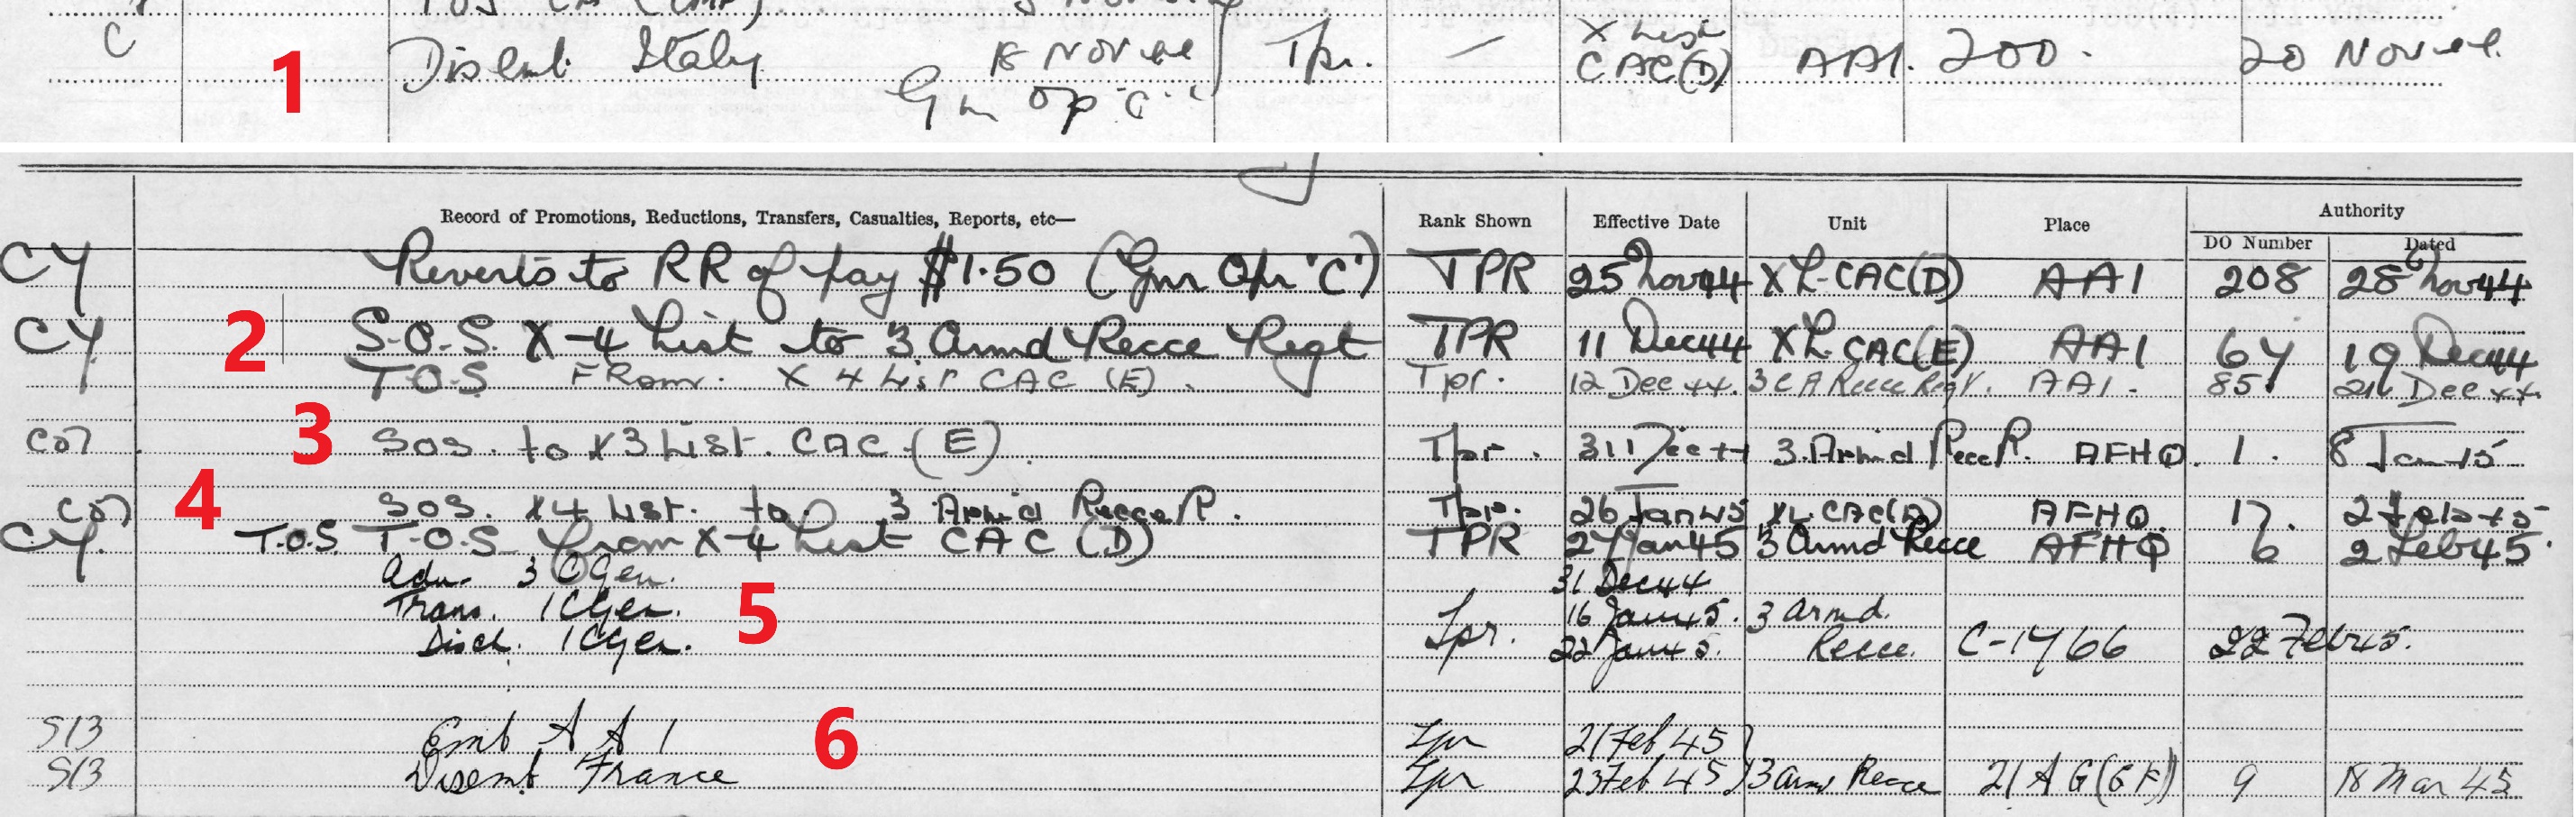 TOS
C 1 Disemb. Italy 18 NOV 44 Tpr. — X List CAC(D) AAI. 200. 20 NOV 44.
Gnr Op "C"
Record of Promotions, Reductions, Transfers, Casualties, Reports, etc— Rank Shown Effective Date Unit Place Authority
DO Number Dated
CY Reverts to RR of pay $1.50 (Gnr Opr 'C') TPR 25 Nov 44 X L-CAC(D) AAI 208 28 Nov 44
CY 2 S.O.S. X-4 List to 3 Armd Recce Regt TPR 11 Dec 44 XL CAC(E) AAI 64 19 Dec 44
T.O.S FROM. X 4 LIST CAC (E). Tpr. 12 Dec 44. 3 C A Recce Regt. AAI. 85 Dec 44.
CO7 3 SOS. to X3 List. CAC (E). Tpr. 31 Dec 44 3. Armd Recce R. AFHQ. 1. 8 Jan 45
CO7 4 SOS. X4 List. to. 3 Armd Recce R. Tpr. 26 Jan 45 XL CAC(D) AFHQ. 17. 2 Feb 45
CY. T.O.S. T.O.S. from X-4 List CAC (D) TPR 27 Jan 45 3 Armd Recce AFHQ 6 2 Feb 45.
Adm. 3 C Gen. 31 Dec 44
Trans. 1 C Gen. 5 16 Jan 45. 3 Armd.
Disch. 1 C Gen. Tpr. 22 Jan 45. Recce. C-1766 22 Feb 45.
S13 Emb A A I 6 Tpr 21 Feb 45
S13 Disemb France Tpr 23 Feb 45 3 Armd Recce 21 A G (G F) 9 18 Mar 45